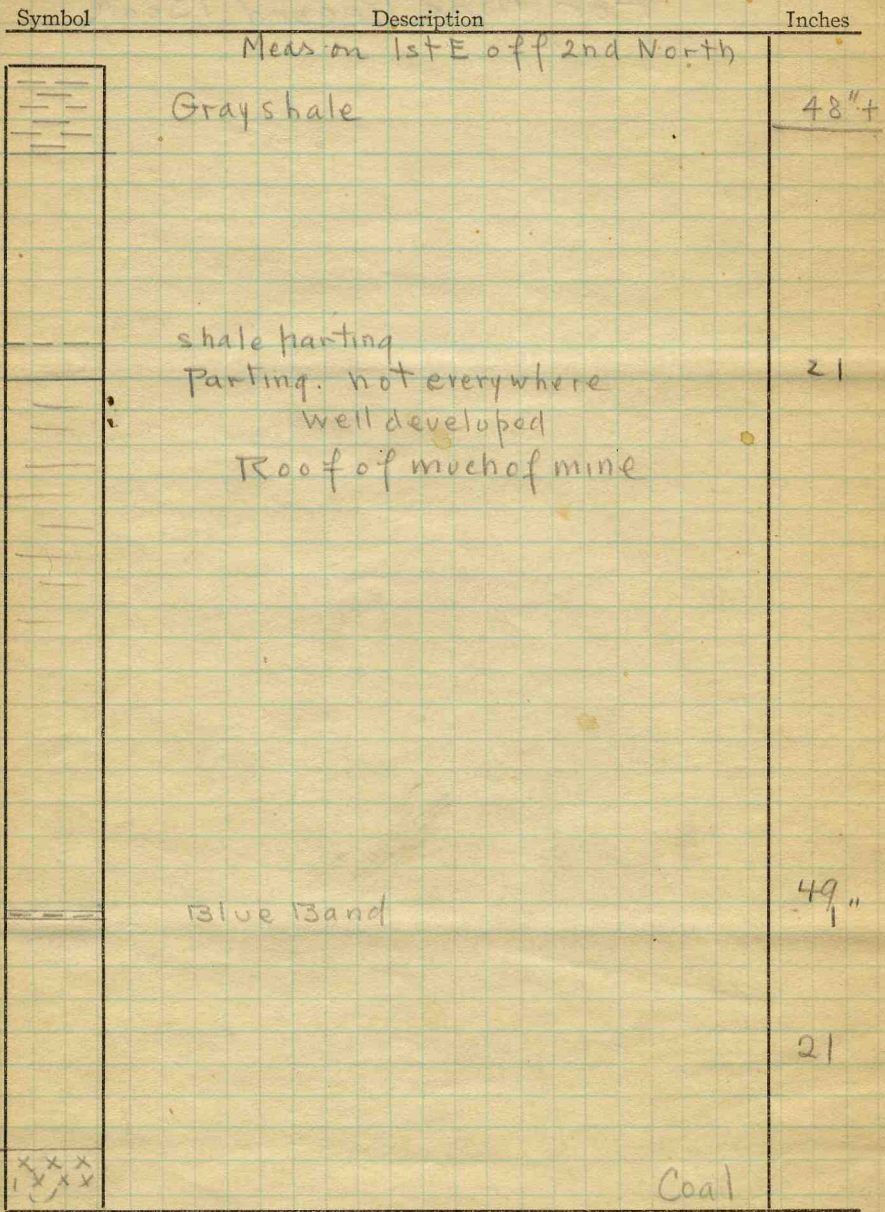 Symbol Description Inches
Meas on 1st E off 2nd North
Gray shale 48"+
shale parting
Parting. not everywhere 21
well developed
Roof of much of mine
Blue Band 49
1"
21
Coal